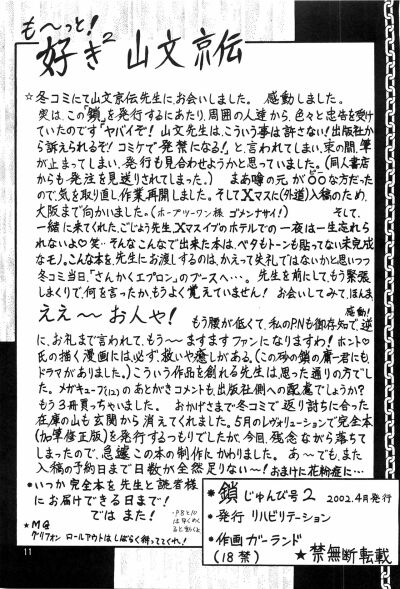 も～っと!
好き² 山文京伝
☆冬コミにて山文京伝先生に、お会いしました。 感動しました。
実は、この「鎖」を発行するにあたり、周囲の人達から、色々と忠告を受け
ていたのです「ヤバイぞ! 山文先生は、こういう事は許さない!出版社か
ら訴えられるぞ!コミケで発禁になる!」と言われてしまい、束の間、筆
が止まってしまい、発行も見合わせようかと思っていました。(同人書店
からも、発注を見送りされてしまった。) まあ噂の元が○○な方だった
ので、気を取り直し、作業、再開しました。そしてXマスに(外道)入稿のため、
大阪まで向かいました。(ホープツーワン様 ゴメンナサイ!) そして、
一緒に来てくれた、ごじょう先生、Xマスイブのホテルでの一夜は一生忘れら
れないよ♡笑…そんなこんなで出来た本は、ベタもトーンも貼ってない未完成
なモノ。こんな本を、先生にお渡しするのは、かえって失礼ではないかと思いつつ
冬コミ当日「さんかくエプロン」のブースへ…。先生を前にして、もう緊張
しまくりで、何を言ったか、もうよく覚えていません! お会いしてみて、ほんま、
ええ～ お人や! 感動!
もう腰が低くて、私のPNも御存知で、逆
に、お礼まで言われて、もう～ますますファンになりますわ!ホント♡
氏の描く漫画には、必ず、救いや癒しがある。(この砂の鎖の庸一君にも、
ドラマがありました。)こういう作品を創れる先生は、思った通りの方でし
た。メガキューブ(12)のあとがきコメントも、出版社側への配慮でしょうか?
もう3冊買っちゃいました。 おかげさまで冬コミで返り討ちに合った
在庫の山も玄関から消えてくれました。5月のレヴォリューションで完全本
(加筆修正版)を発行するつもりでしたが、今回、残念ながら落ちて
しまったので、急遽この本の制作にかわりました。 あ～でも、また
入稿の予約日まで日数が全然足りな～い!おまけに花粉症に…
•いつか完全本を先生と読者様
にお届けできる日まで!
では また!
★MG
グリフォン ロールアウトはしばらく待っててくれ!
•鎖 じゅんび号2 2002.4月発行
•発行 リハビリテーション
•作画 ガーランド
(18禁) ★禁無断転載
11